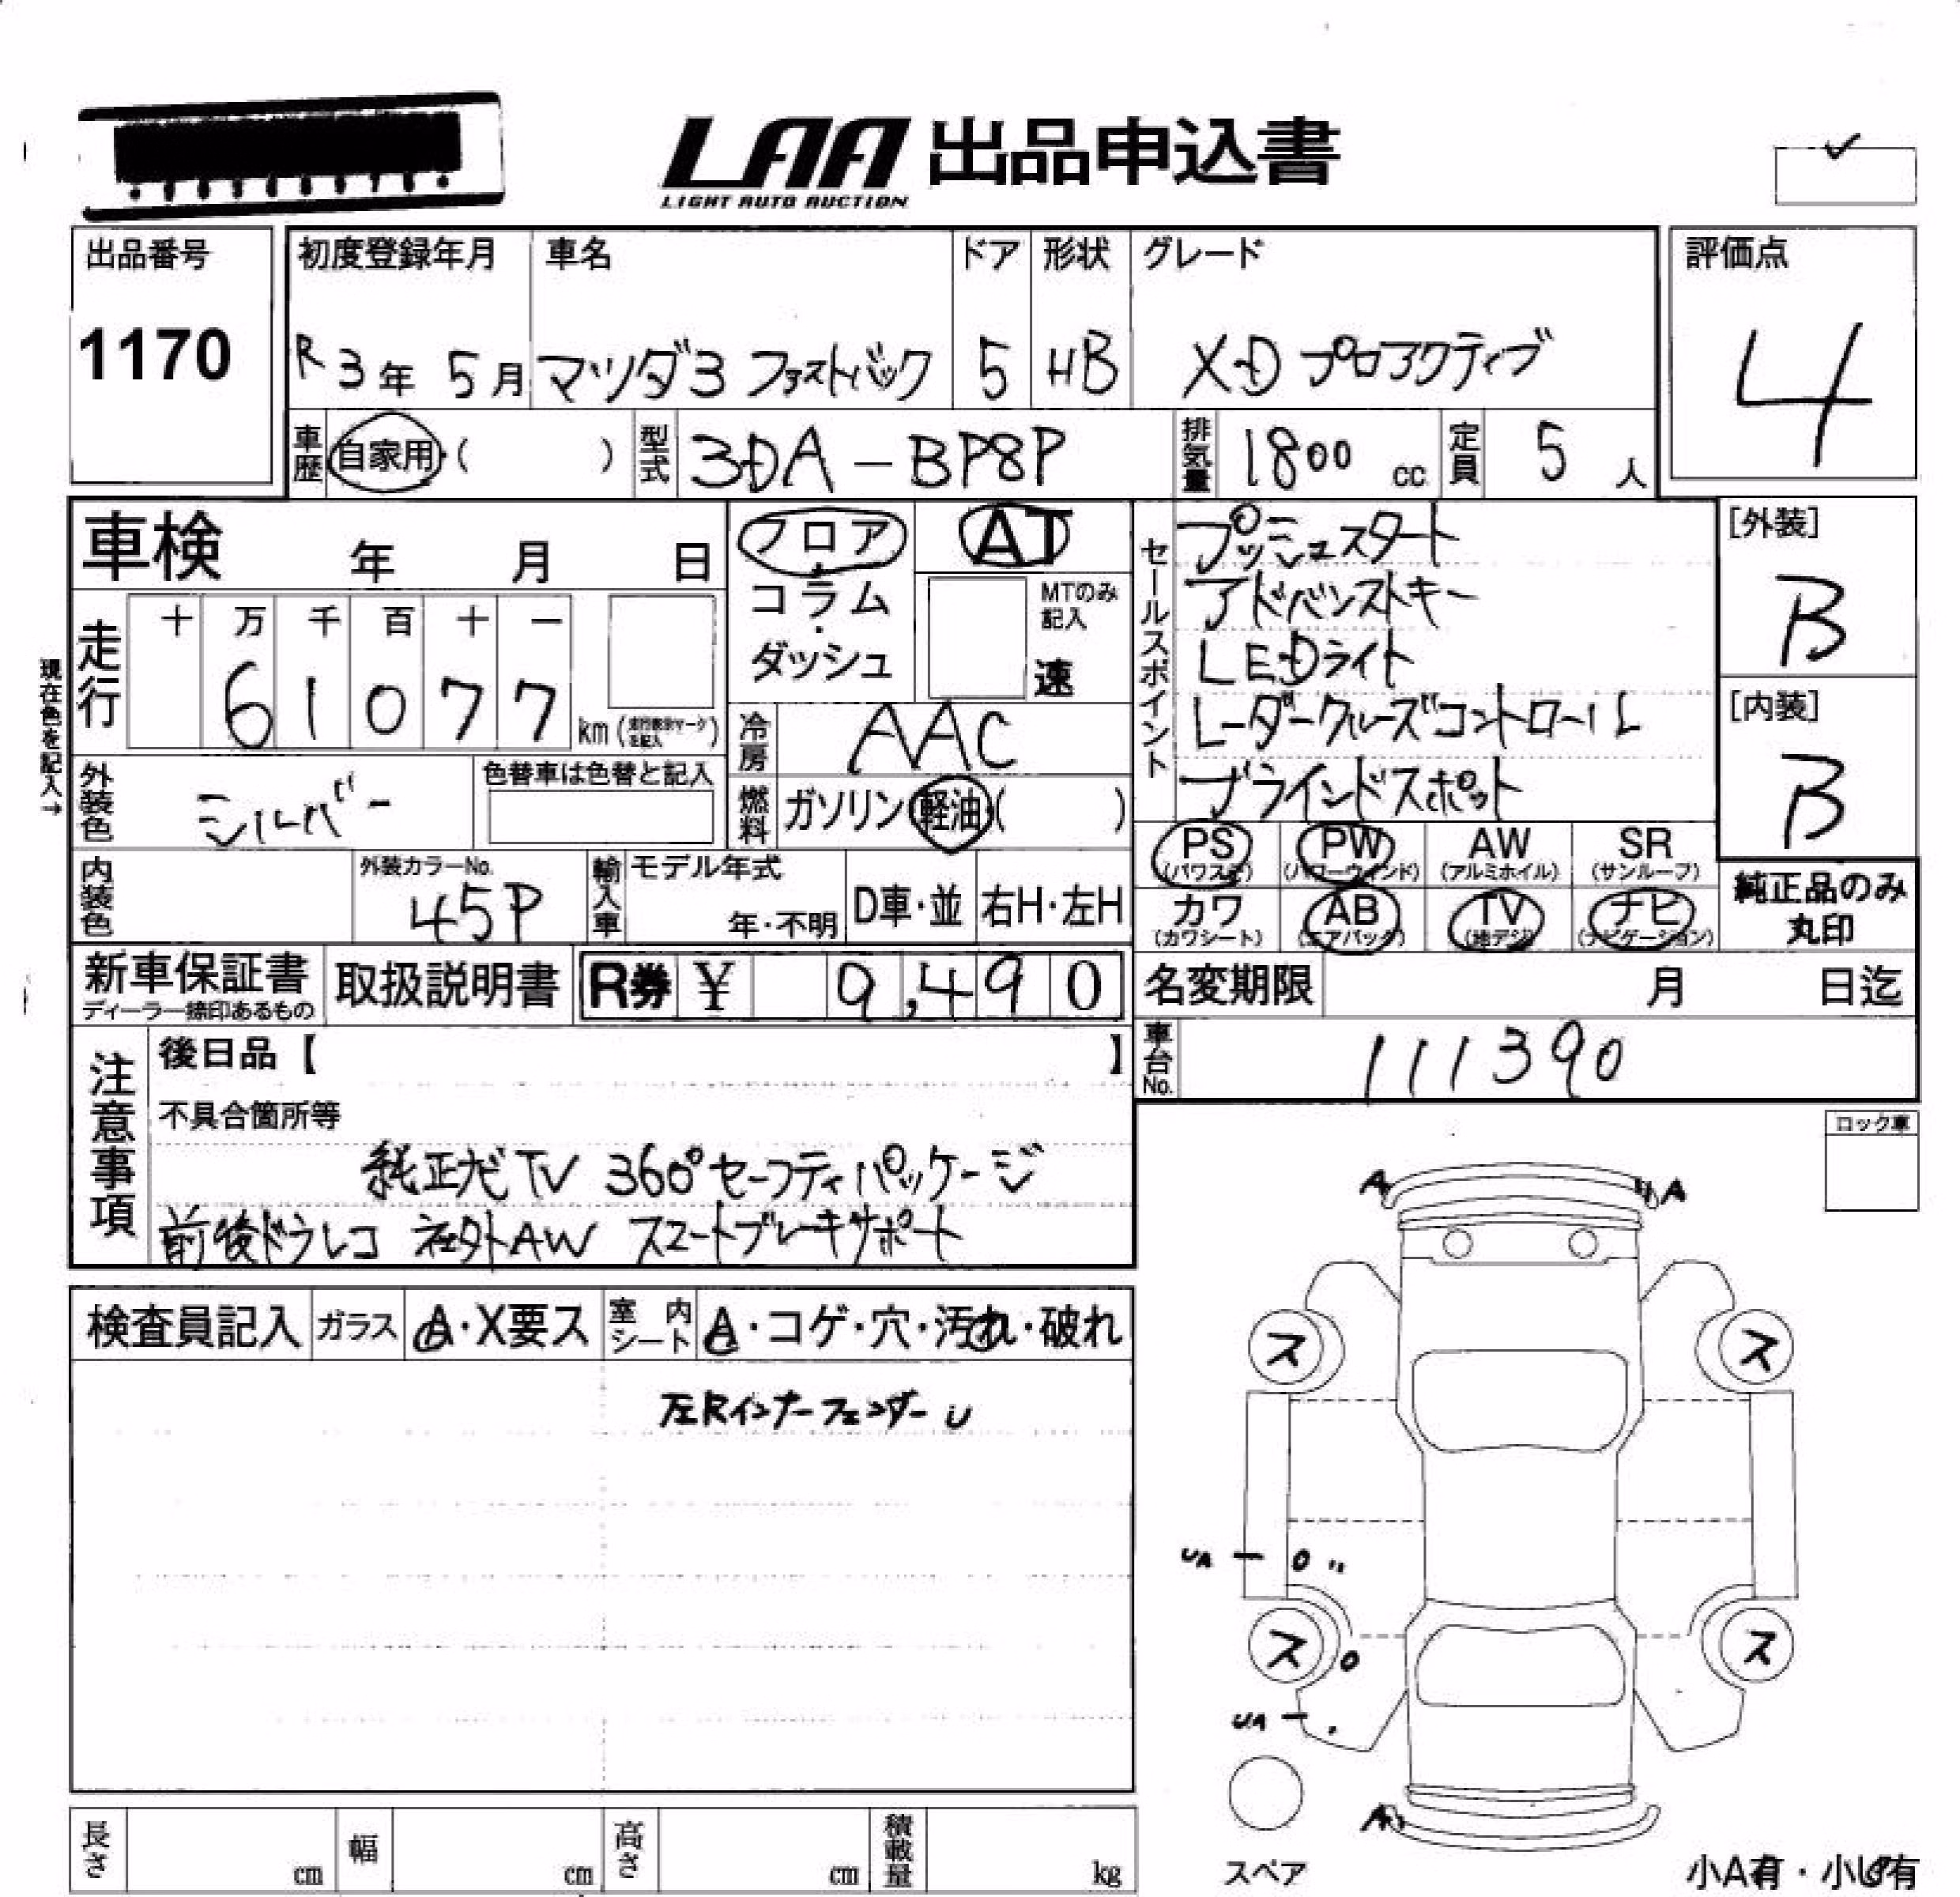 LAA 出品申込書
LIGHT AUTO AUCTION
出品番号
1170
初度登録年月
R3年 5月
車名
マツダ3 ファストバック
ドア
5
形状
HB
グレード
XD プロアクティブ
評価点
4
車歴 自家用・( )
型式 3DA-BP8P
排気量 1800 cc
定員 5 人
車検 年 月 日
フロア
コラム・
ダッシュ
AT
MTのみ記入
速
セールスポイント
プッシュスタート
アドバンストキー
LEDライト
レーダークルーズコントロール
ブラインドスポット
[外装]
B
[内装]
B
現在色を記入→
走行 十 万 千 百 十 一
61077 km
冷房 AAC
外装色 シルバー
色替車は色替と記入
燃料 ガソリン・軽油・( )
PS (パワステ) PW (パワーウィンド) AW (アルミホイル) SR (サンルーフ)
カワ (カワシート) AB (エアバッグ) TV (地デジ) ナビ (ナビゲーション)
純正品のみ
丸印
内装色
外装カラーNo.
45P
輸入車 モデル年式
年・不明
D車・並 右H・左H
新車保証書
ディーラー捺印あるもの
取扱説明書
R券 ¥ 9,490
名変期限 月 日迄
車台No. 111390
注意事項
後日品【 】
不具合箇所等
純正ナビTV 360°セーフティパッケージ
前後ドラレコ 社外AW スマートブレーキサポート
ロック車
検査員記入 ガラス A・X要ス 室内シート A・コゲ・穴・汚れ・破れ
左Rインナーフェンダー U
A
A
ス
ス
UA
ス
ス
UA
A
スペア
小A有・小U有
長さ cm 幅 cm 高さ cm 積載量 kg